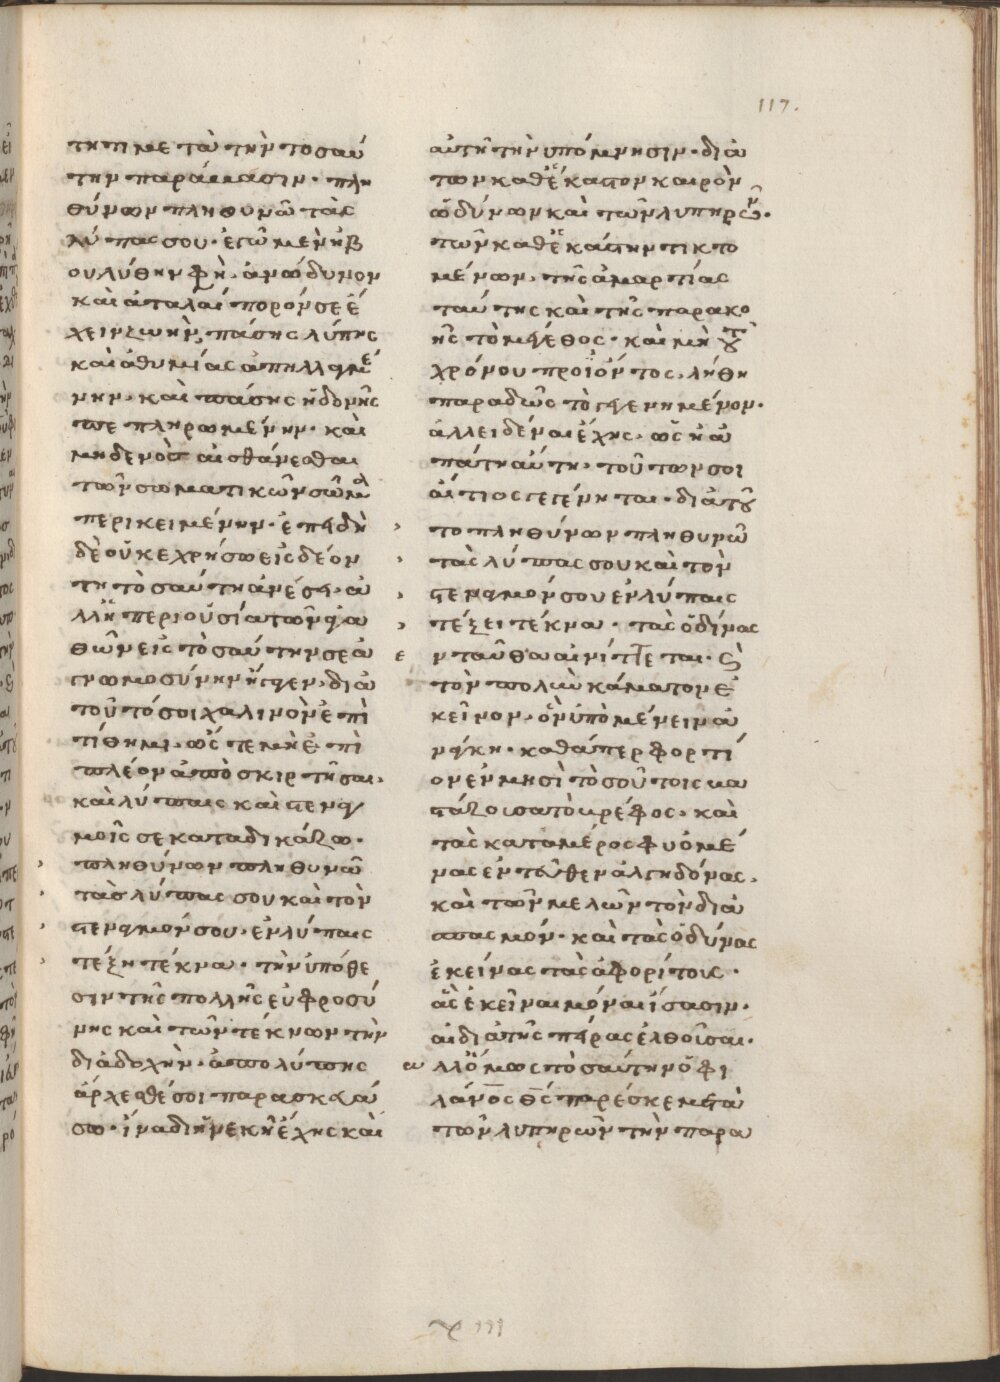 117.
τητι μετὰ τὴν τοσαύ
την παράβασιν· πλη
θύνων πληθυνῶ τὰς
λύπας σου· ἐγὼ μὲν ἠβ
ουλήθην φη· ἀνώδυνον
καὶ ἀταλαίπορόν σε ἔ
χειν ζωὴν, πάσης λύπης
καὶ ἀθυμίας ἀπηλλαγμέ
νην· καὶ πάσης ἡδονῆς
πεπληρωμένην· καὶ
μηδενὸς αἰσθάνεσθαι
τῶν σωματικῶν σῶμα
περικειμένην· ἐπειδὴ
δὲ οὐκ ἐχρήσω εἰς δέον
τῆ τοσαύτη ἀνέσει· ἀ
λλ' ἡ περιουσία τῶν ἀγα
θῶν εἰς τοσαύτην σε ἀ
γνωμοσύνην ἤγαγεν· διὰ
τοῦτό σοι χαλινὸν ἐπι
τίθημι· ὥστε μὴ ἐπὶ
πλέον ἀποσκιρτῆσαι·
καὶ λύπαις καὶ στεναγ
μοῖς σε καταδικάζω·
πληθύνων πληθυνῶ
τὰς λύπας σου καὶ τὸν
στεναγμόν σου· ἐν λύπαις
τέξη τέκνα· τὴν ὑπόθε
σιν τῆς πολλῆς εὐφροσύ
νης καὶ τῶν τέκνων τὴν
διαδοχὴν· ἀπο λύπης
ἄρχεσθέ σοι παρασκευά
σω· ἵνα διηνεκῆ ἔχης καὶ
αὐτὴ τὴν ὑπόμνησιν· διὰ
τῶν καθ' ἕκαστον καιρὸν
ὠδύνων καὶ τῶν λυπηρῶν·
τῶν καθ' ἑκάστην τικτο
μένων· τῆς ἁμαρτίας
ταύτης καὶ τῆς παρακο
ῆς τὸ μέγεθος· καὶ μὴ τοῦ
χρόνου προϊόντος· λήθη
παραδῶς τὸ γεγενημένον·
ἀλλ' εἰδέναι ἔχης· ὡς ἡ ἀ
πάτη αὕτη· τούτων σοι
αἴτιος γεγένηται· διὰ τοῦ
το πληθύνων πληθυνῶ
τὰς λύπας σου καὶ τὸν
στεναγμόν σου ἐν λύπαις
τέξει τέκνα· τὰς ὀδίνας
ἐνταῦθα αἰνίττεται· καὶ
τὸν πολὺν κάματον ἐ
κεῖνον· ὃν ὑπομένειν ἀ
νάγκη· καθάπερ φορτί
ον ἐν μησὶ τοσούτοις βα
στάζουσα τὸ βρέφος· καὶ
τὰς κατὰ μέρος φυομέ
νας ἐντεῦθεν ἀλγηδόνας·
καὶ τῶν μελῶν τὸν δια
σπασμόν· καὶ τὰς ὀδύνας
ἐκείνας τὰς ἀφορίτους·
ἃς ἐκεῖναι μόναι ἴσασιν·
αἱ διὰ τῆς πείρας ἐλθοῦσαι·
ἀλλ' ὅμως τοσαύτην ὁ φι
λάνος θς παρέσχε μετὰ
τῶν λυπηρῶν τὴν παρα
111